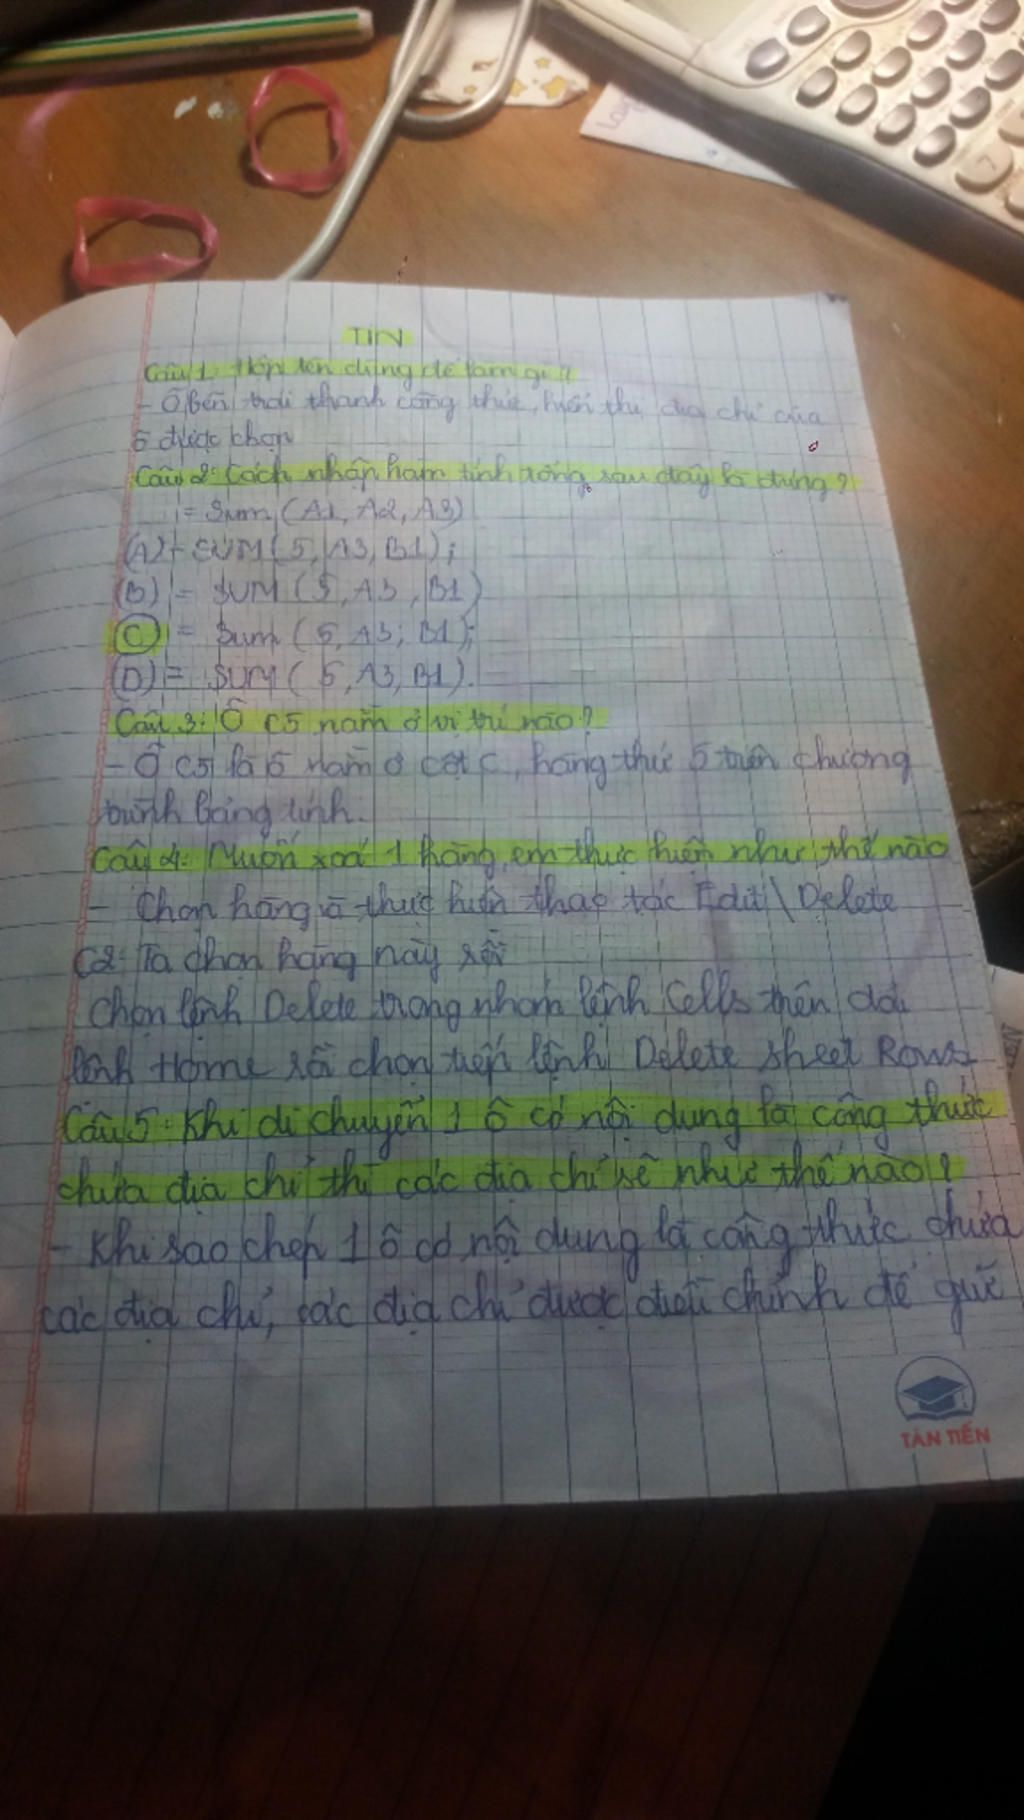 TIN
Câu 1: Hộp tên dùng để làm gì?
- Ô bên trái thanh công thức, hiển thị địa chỉ của
ô được chọn
Câu 2: Cách nhập hàm tính tổng sau đây là đúng?
= Sum (A1, A2, A3)
(A) = SUM (5, A3, B1);
(B) = SUM (5, A3, B1)
(C) = Sum (5, A3; B1);
(D) = SUM (5, A3, B1).
Câu 3: Ô C5 nằm ở vị trí nào?
- Ô C5 là ô nằm ở cột C, hàng thứ 5 trên chương
trình bảng tính.
Câu 4: Muốn xoá 1 hàng, em thực hiện như thế nào
- Chọn hàng và thực hiện thao tác Edit \ Delete
C2: Ta chọn hàng này rồi
Chọn lệnh Delete trong nhóm lệnh Cells trên dải
lệnh Home rồi chọn tiếp lệnh Delete sheet Rows
Câu 5: Khi di chuyển 1 ô có nội dung là công thức
chứa địa chỉ thì các địa chỉ sẽ như thế nào?
- Khi sao chép 1 ô có nội dung là công thức chứa
các địa chỉ, các địa chỉ được điều chỉnh để giữ
TÂN TIẾN